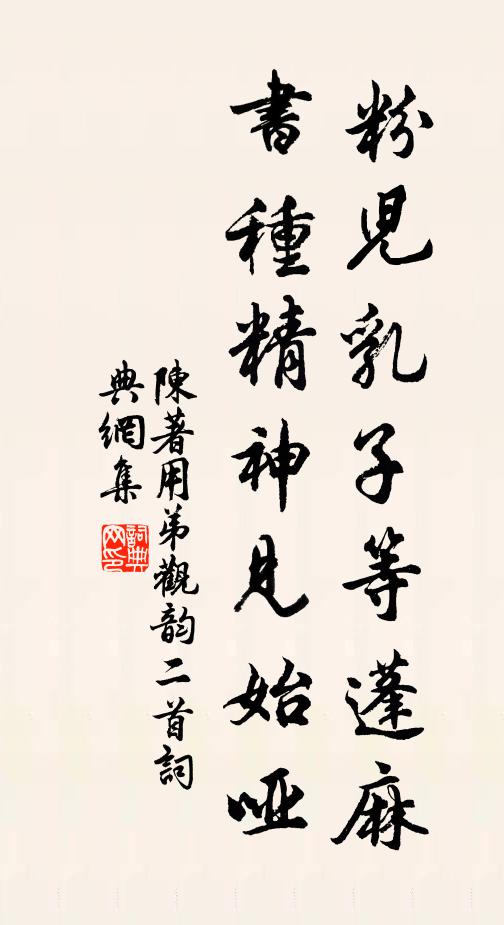 粉兒乳子等蓬麻
書種精神見始啞
陳著用弟觀韵二首詞
典網集
詞典網印